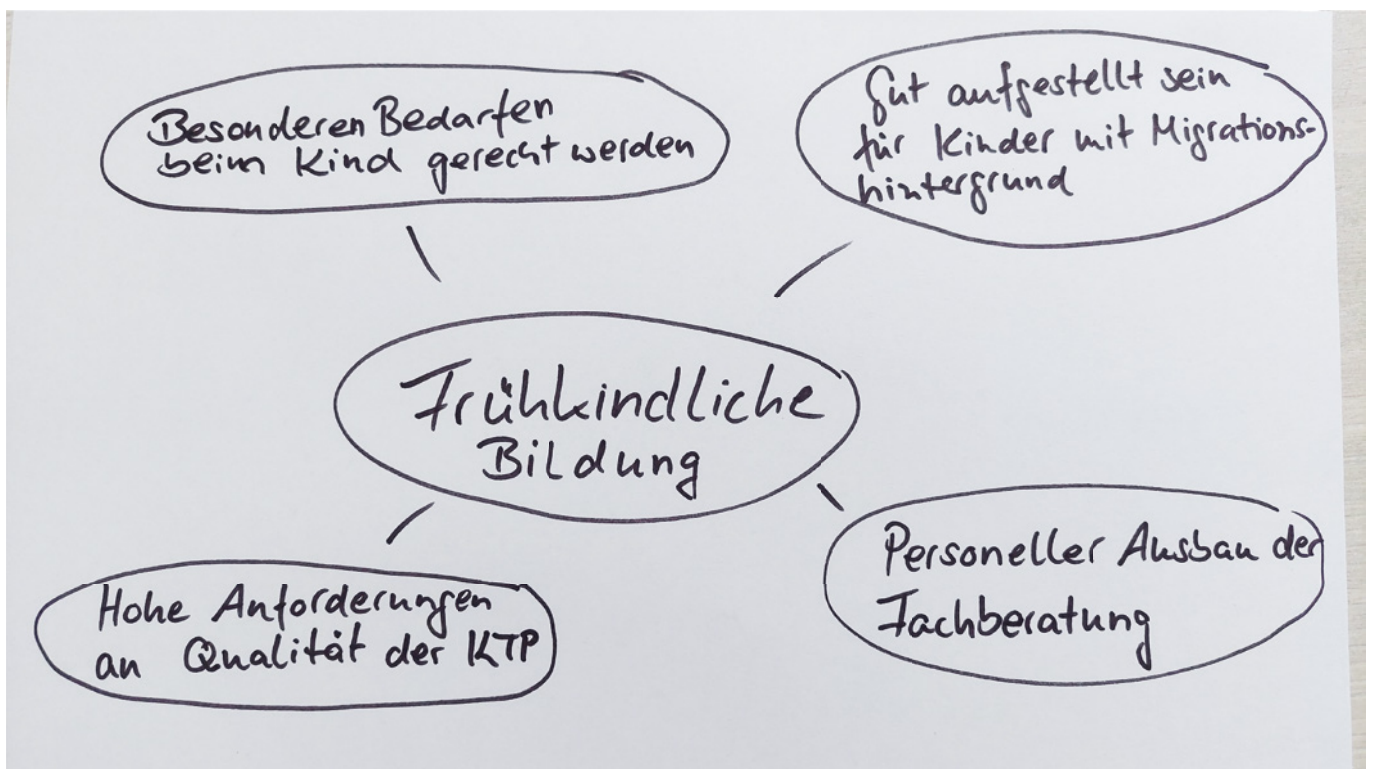 Besonderen Bedarfen
beim Kind gerecht werden
Gut aufgestellt sein
für Kinder mit Migrations-
hintergrund
Frühkindliche
Bildung
Hohe Anforderungen
an Qualität der KTP
Personeller Ausbau der
Fachberatung